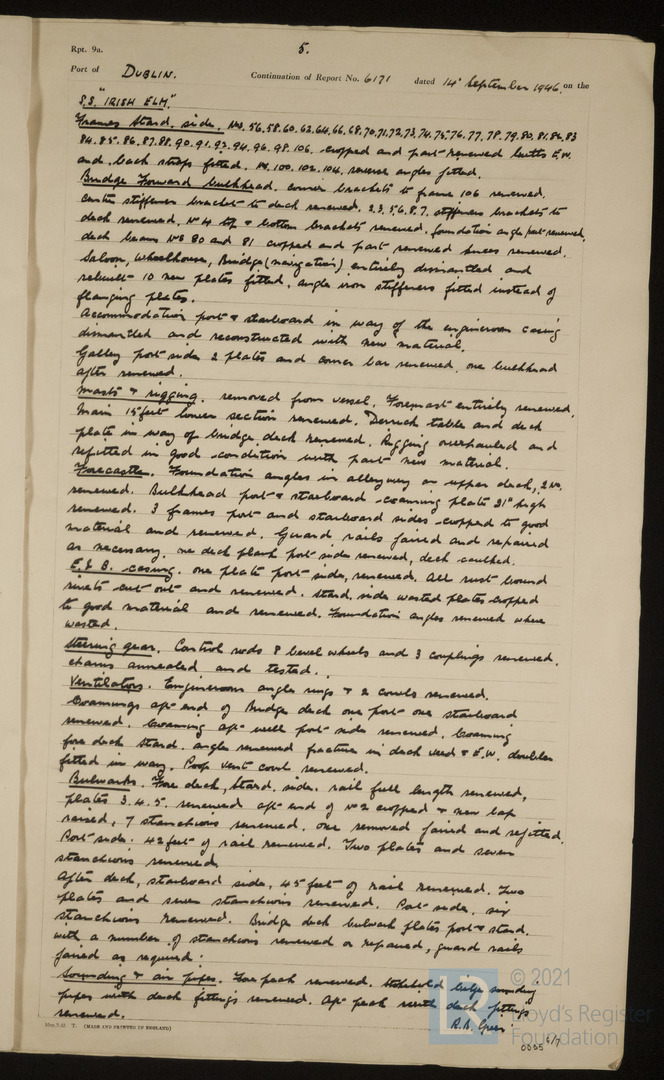 Rpt. 9a.
5.
Port of DUBLIN. Continuation of Report No. 6171 dated 14th September 1946, on the
S.S. "IRISH ELM."
Frames Stard. side. Nos. 56.58.60.62.64.66.68.70.71.72.73.74.75.76.77.78.79.80.81.82.83
84.85.86.87.88.90.91.92.94.96.98.106. cropped and part renewed butts E.W.
and back straps fitted. Nos. 100.102.104. reverse angles fitted.
Bridge Forward bulkhead. corner brackets to frame 106 renewed.
Center stiffener bracket to deck renewed. 2.3.5.6.8.7. stiffeners brackets to
deck renewed. No 4 top & bottom brackets renewed. foundation angle part renewed,
deck beams Nos 80 and 81 cropped and part renewed knees renewed.
Saloon, Wheelhouse, Bridge (navigation) entirely dismantled and
rebuilt 10 new plates fitted, angle iron stiffeners fitted instead of
flanging plates.
Accommodation port & starboard in way of the engineroom casing
dismantled and reconstructed with new material.
Galley port side 2 plates and corner bar renewed, one bulkhead
after renewed.
Masts & rigging. removed from vessel. Foremast entirely renewed,
Main 15 feet lower section renewed. Derrick table and deck
plate in way of bridge deck renewed. Rigging overhauled and
refitted in good condition with part new material.
Forecastle. Foundation angles in alleyway on upper deck, 2 No.
renewed. Bulkhead port & starboard coaming plate 21" high
renewed. 3 frames port and starboard sides cropped to good
material and renewed. Guard rails faired and repaired
as necessary, one deck plank port side renewed, deck caulked.
E. & B. casing. one plate port side, renewed. All rust bound
rivets cut out and renewed. Stard. side wasted plates cropped
to good material and renewed. Foundation angles renewed where
wasted.
Steering gear. Control rods 8 bevel wheels and 3 couplings renewed.
chains annealed and tested.
Ventilators. Engineroom angle rings & 2 cowls renewed.
Coamings aft end of Bridge deck one port one starboard
renewed. Coaming aft well port side renewed. Coaming
fore deck stard. angle renewed fracture in deck veed & E.W. doubler
fitted in way. Poop vent cowl renewed.
Bulwarks. Fore deck, stard. side. rail full length renewed,
plates 3.4.5. renewed aft end of No 2 cropped & new lap
raised, 7 stanchions renewed, one removed faired and refitted.
Port side: 42 feet of rail renewed. Two plates and seven
stanchions renewed.
After deck, starboard side, 45 feet of rail renewed. Two
plates and seven stanchions renewed. Port side, six
stanchions renewed. Bridge deck bulwark plates port & stard.
with a number of stanchions renewed or repaired, guard rails
faired as required.
Sounding & air pipes. Fore peak renewed. Stokehold bilge sounding
pipes with deck fittings renewed. Aft peak with deck fittings
renewed.
(MADE AND PRINTED IN ENGLAND)
© 2021
Lloyd's Register
Foundation
0005 6/7